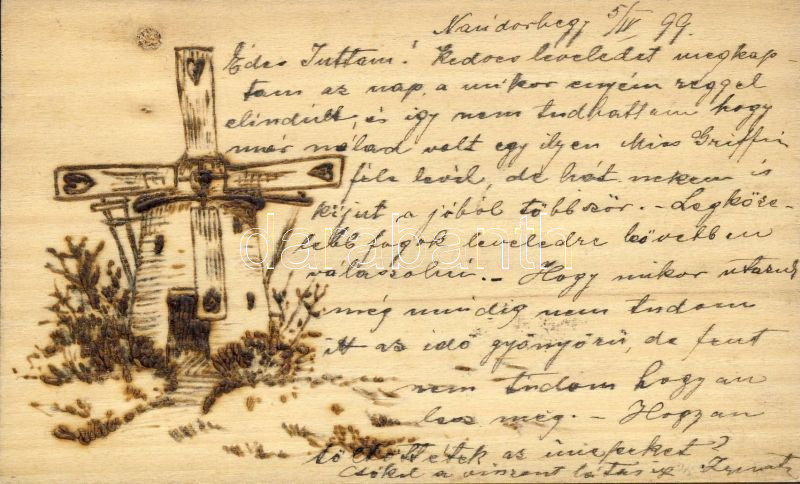 Nándorhegy 5/IV 99.
Édes Juttam! Kedves leveledet megkap-
tam az nap, a mikor enyém reggel
elindult, és igy nem tudhattam hogy
már nálad volt egy ilyen Miss Griffin
féle levél, de hát nekem is
kijut a jóból többször. – Legköze-
lebb fogok leveledre bővebben
válaszolni. – Hogy mikor utazunk
még mindig nem tudom
itt az idő gyönyörű, de fent
nem tudom hogyan
lesz még. – Hogyan
töltöttétek az ünnepeket?
Csókol a viszont látásig
darabanth